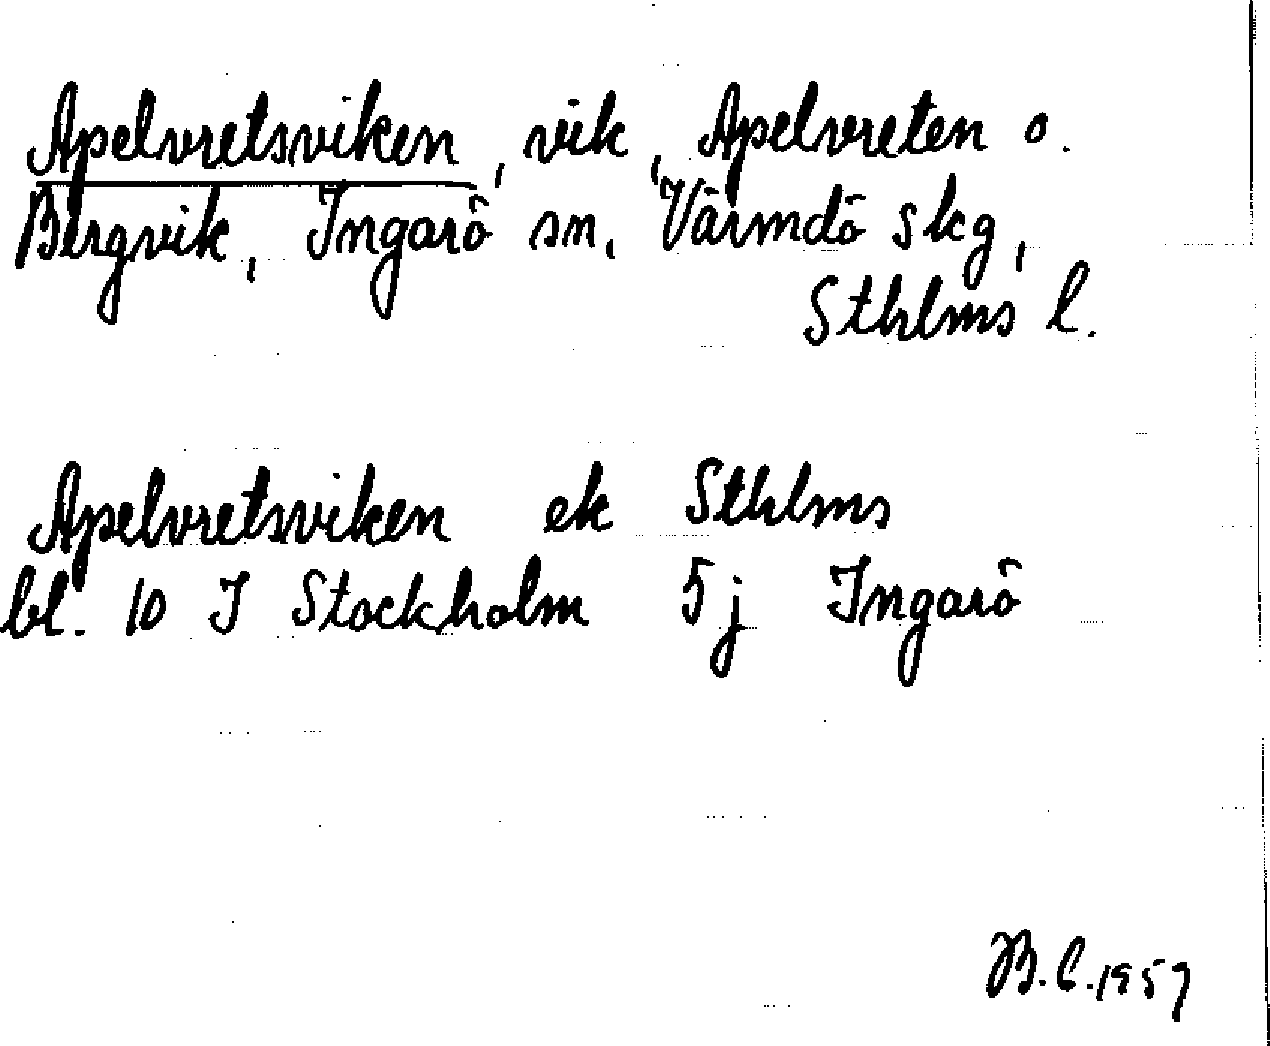 Apelvretsviken, vik, Apelvreten o.
Bergvik, Ingarö sn, Värmdö skg,
Sthlms l.
Apelvretsviken ek Sthlms
bl. 10 I Stockholm 5j Ingarö
B.C. 1957